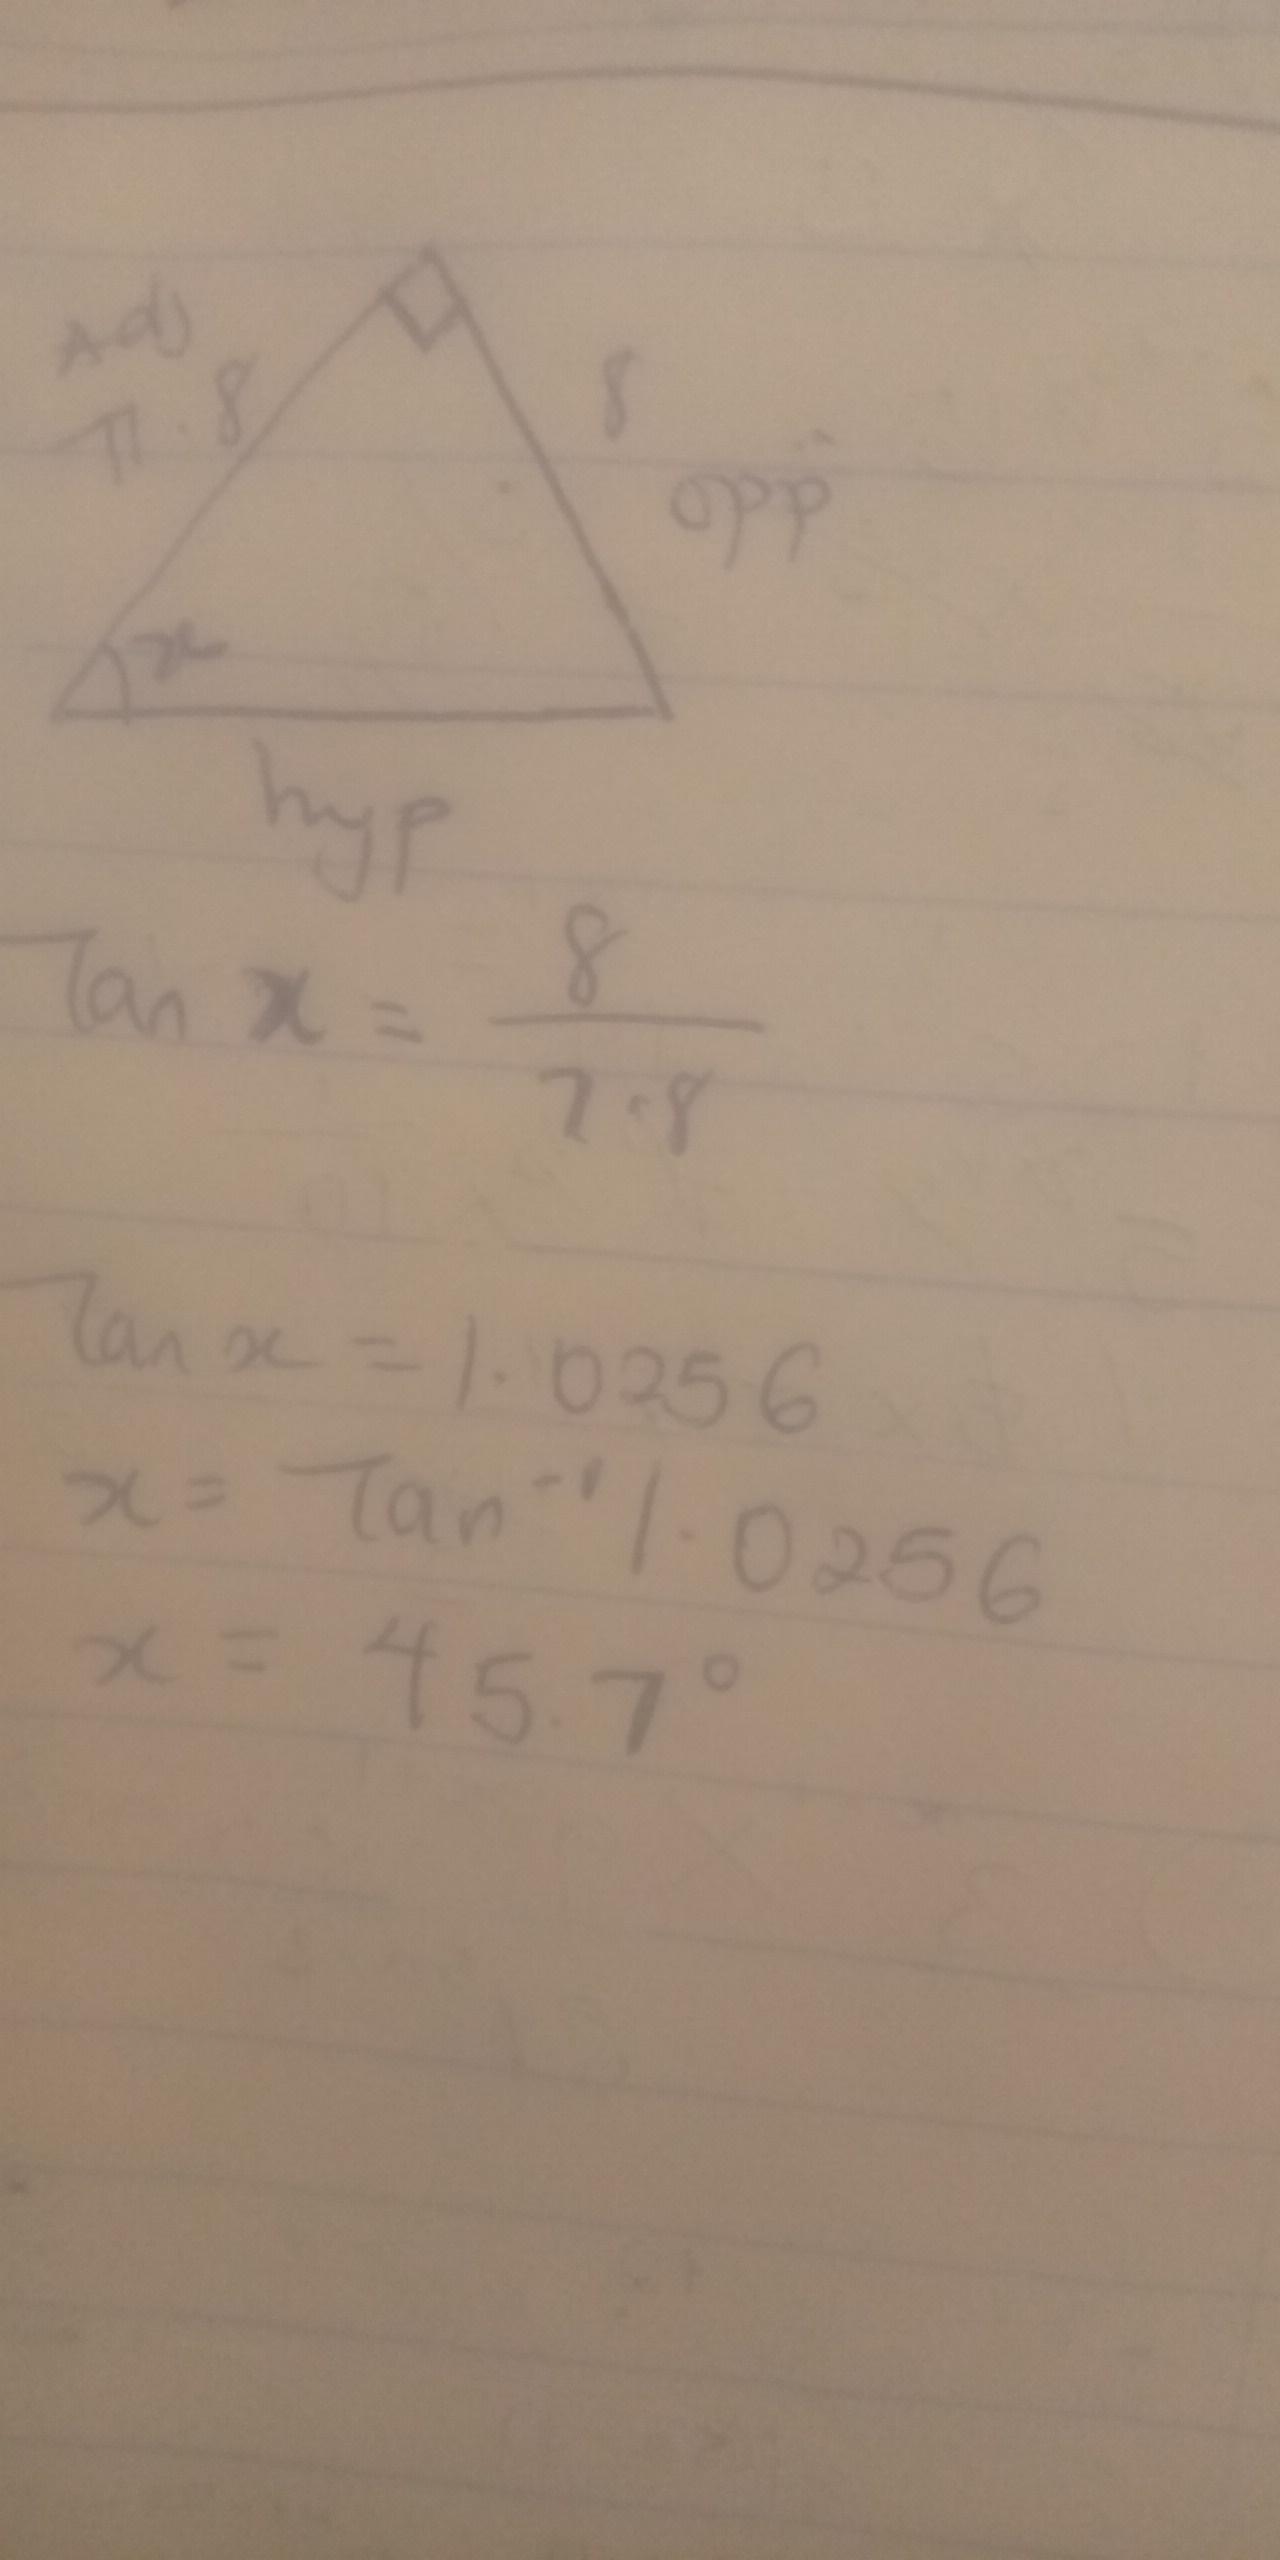 Adj
7.8
8
opp
x
hyp
Tan x = 8/7.8
Tan x = 1.0256
x = Tan⁻¹ 1.0256
x = 45.7°